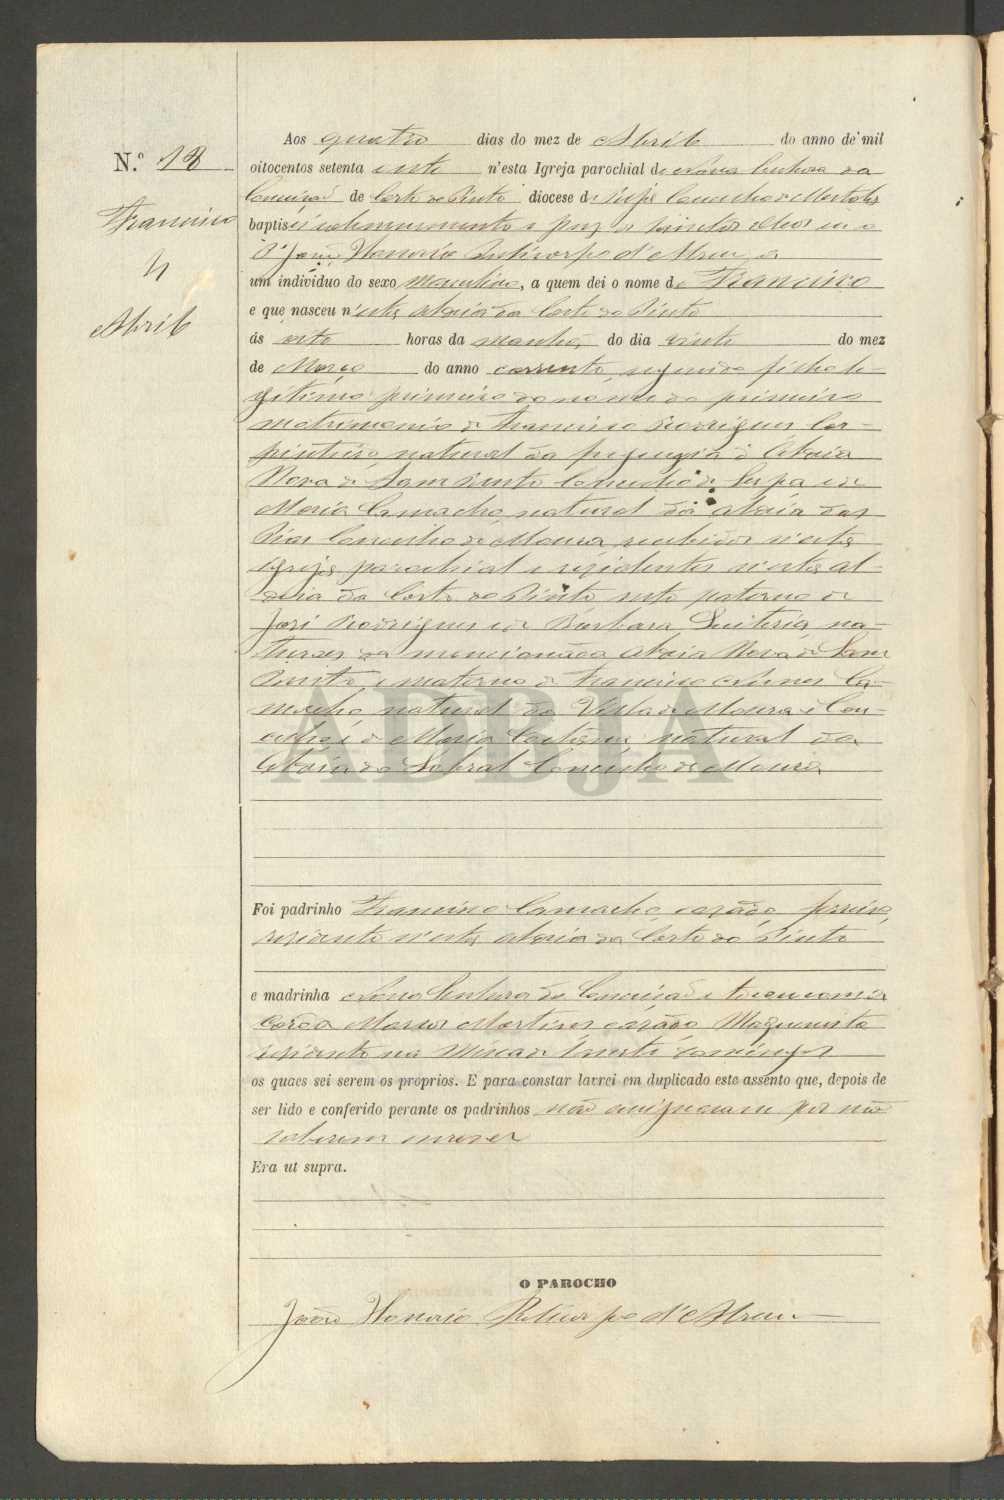 N.º 18
Francisco
4
Abril
Aos quatro dias do mez de Abril do anno de mil
oitocentos setenta e sete n'esta Igreja parochial de Nossa Senhora da
Conceição de Corte do Pinto diocese de Beja Concelho de Mertola
baptisei solemnemente e puz os Santos Oleos eu o
P.e João Honorio Policarpo d'Abreu, a
um individuo do sexo masculino, a quem dei o nome de Francisco
e que nasceu n'esta aldeia da Corte do Pinto
ás oito horas da manhã, do dia vinte do mez
de Março do anno corrente, segundo filho le-
gitimo primeiro do nome do primeiro
matrimonio de Francisco Rodrigues Car-
pinteiro, natural da freguezia d'Aldeia
Nova de Sam Bento Concelho de Serpa e de
Maria Camacho, natural da aldeia dos
Pias Concelho de Moura, recebidos n'esta
igreja parochial e residentes n'esta al-
deia da Corte do Pinto neto paterno de
José Rodrigues e de Barbara Quiteria, na-
turaes da mencionada Aldeia Nova de Sam
Bento, e materno de Francisco Nunes Ca-
macho, natural da Villa de Moura e Con-
celho, e de Maria natural da
Aldeia do Sobral Concelho de Moura
ADBJA
Foi padrinho Francisco Camacho, casado, ferreiro,
residente n'esta aldeia da Corte do Pinto
e madrinha Nossa Senhora da Conceição e tocou com a
corôa Marcos Martins casado Maquinista
residente na Mina de Sam Domingos
os quaes sei serem os proprios. E para constar lavrei em duplicado este assento que, depois de
ser lido e conferido perante os padrinhos não assignaram por não
saberem escrever
Era ut supra.
O PAROCHO
João Honorio Policarpo d'Abreu